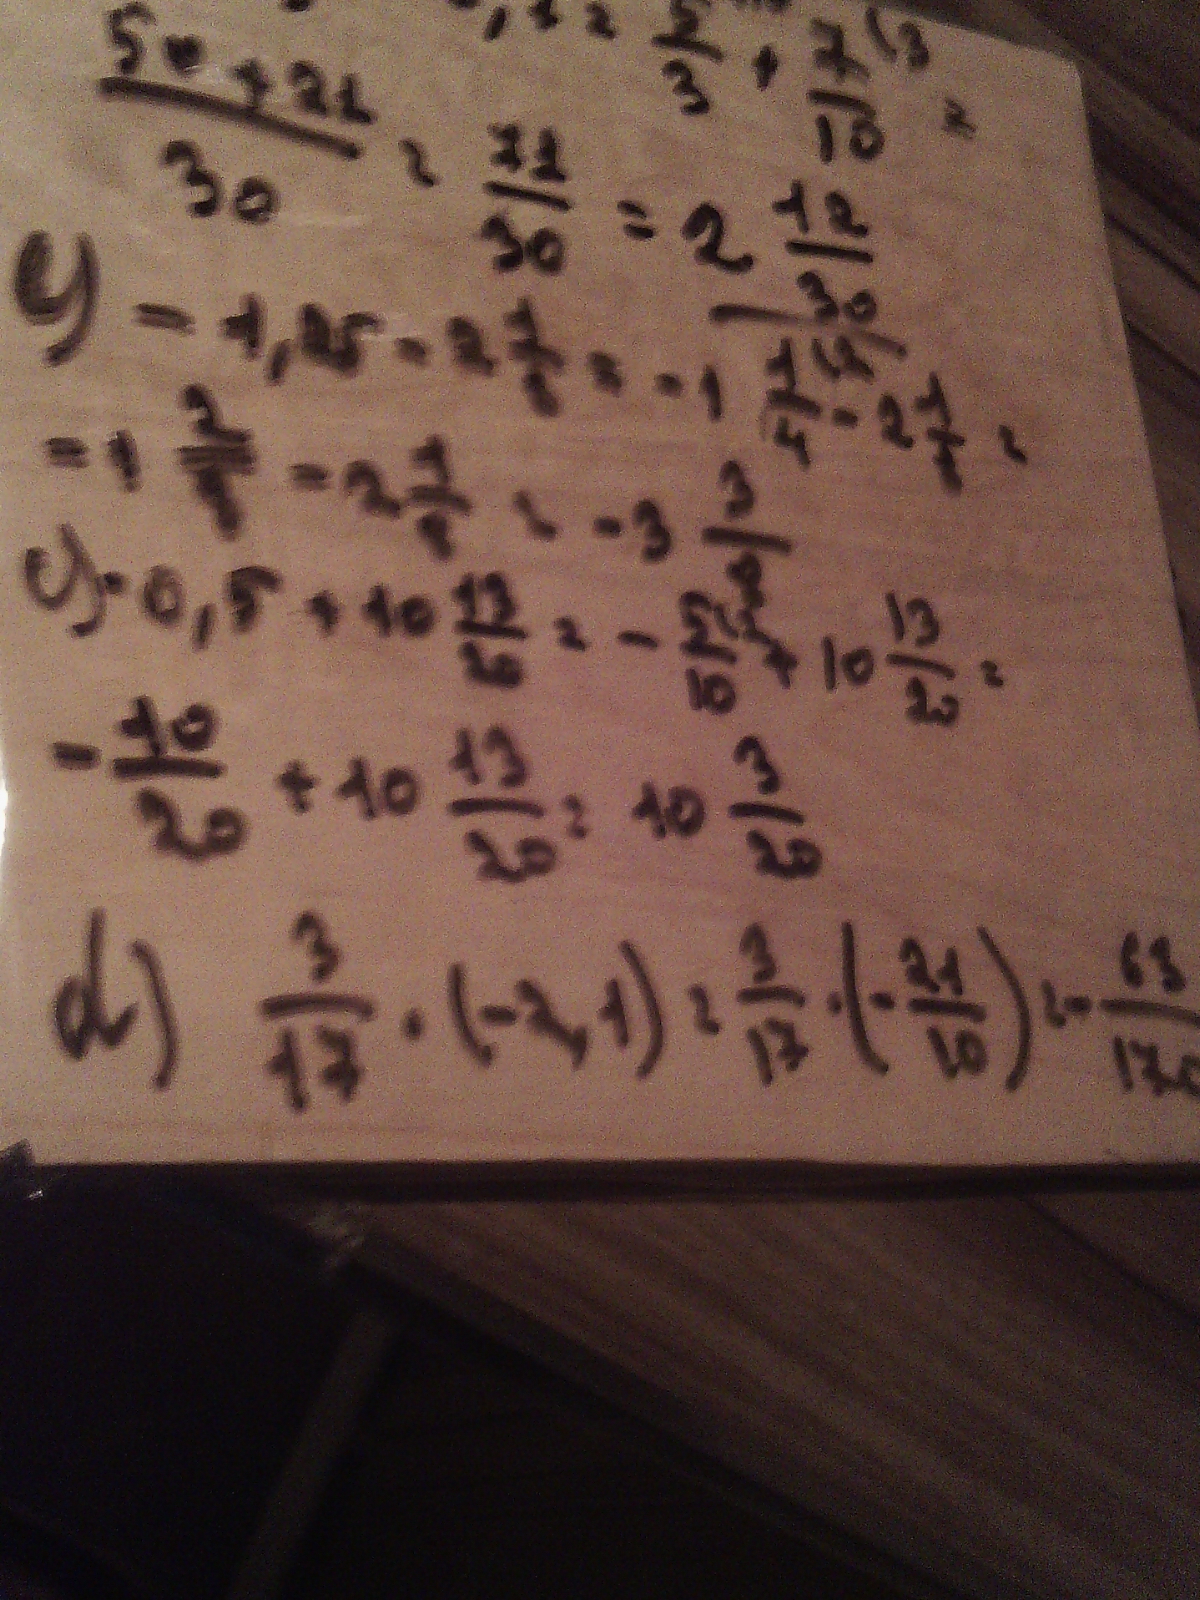 5/3 + 7/10 (3 =
50+21/30 = 71/30 = 2 12/30
y - 1,25 - 2 1/8 = -1 1/4 - 2 1/8 =
= 1 2/8 - 2 1/8 = -3 3/8
y - 0,5 + 10 13/20 = - 5/10 + 10 13/20 =
- 10/20 + 10 13/20 = 10 3/20
d) 3/17 · (-2,1) = 3/17 · (- 21/10) = - 63/170